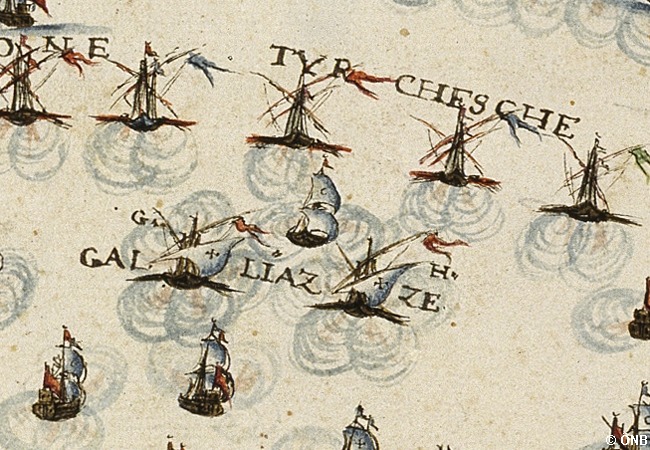 NE TVRCHESCHE
G.
GALLIAZZE
H.
© ÖNB